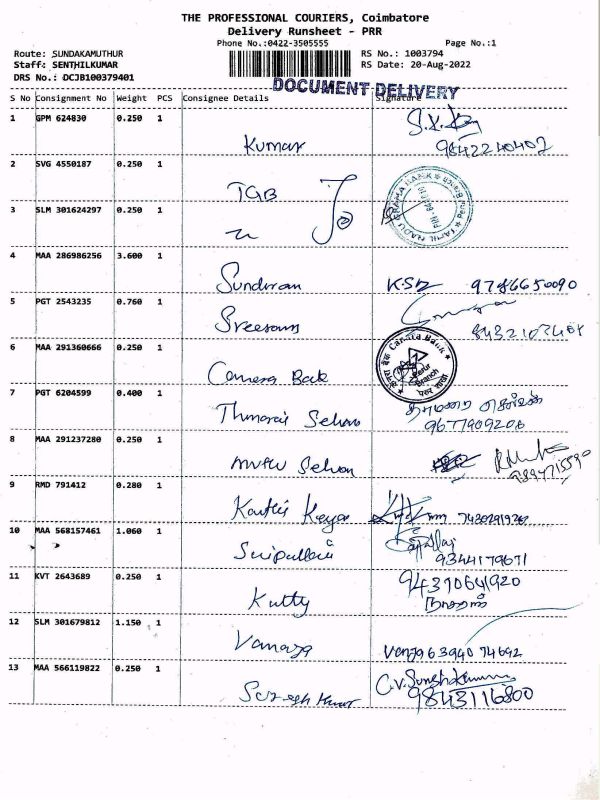 THE PROFESSIONAL COURIERS, Coimbatore
Delivery Runsheet - PRR
Phone No.:0422-3505555
Page No.:1
Route: SUNDAKAMUTHUR
RS No.: 1003794
Staff: SENTHILKUMAR
RS Date: 20-Aug-2022
DRS No.: DCJB100379401
DOCUMENT DELIVERY
S No Consignment No Weight PCS Consignee Details Signature
1 GPM 624830 0.250 1
Kumar 9842240402
2 SVG 4550187 0.250 1
TGB
TAMIL NADU GRAMA BANK
3 SLM 301624297 0.250 1
4 MAA 286986256 3.600 1
Sundaram 9786650090
5 PGT 2543235 0.760 1
Sreeram
6 MAA 291360666 0.250 1
Canara Bank
Canara Bank
Perur
Branch
7 PGT 6204599 0.400 1
Thmarai Selvan
9677909208
8 MAA 291237280 0.250 1
Selvan
9 RMD 791412 0.280 1
10 MAA 568157461 1.060 1
9344179671
11 KVT 2643689 0.250 1
Kutty
12 SLM 301679812 1.150 1
Vanaja 63940 74692
13 MAA 566119822 0.250 1
Suresh Kumar C.V.Sureshkumar
9843116800